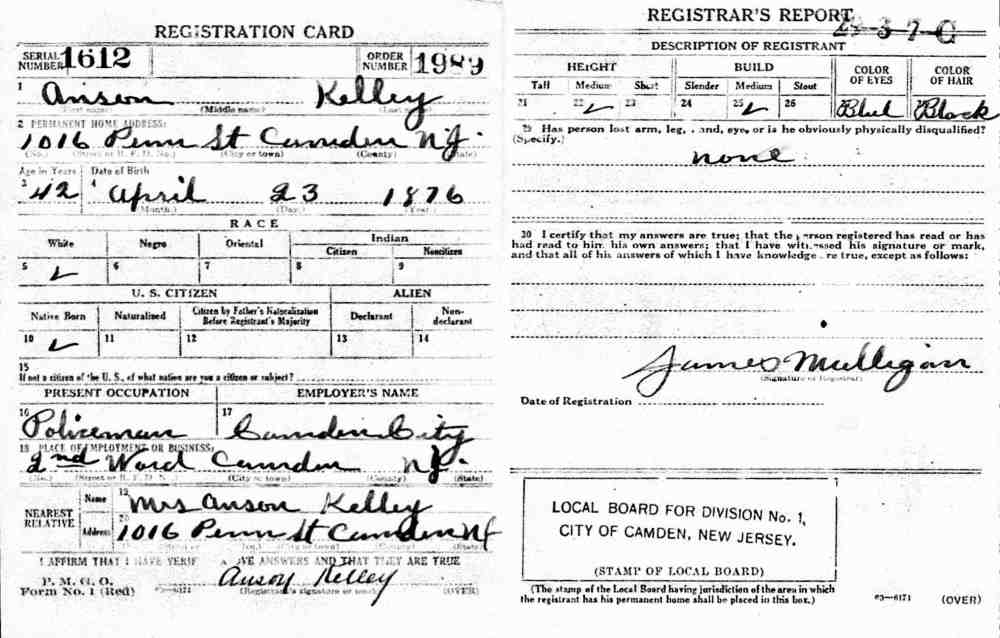 REGISTRATION CARD
SERIAL NUMBER 1612
ORDER NUMBER 1989
1 Anson Kelley
(First name) (Middle name) (Last name)
2 PERMANENT HOME ADDRESS:
1016 Penn St Camden NJ.
(No.) (Street or R. F. D. No.) (City or town) (County) (State)
Age in Years Date of Birth
3 42 4 April 23 1876
(Month.) (Day.) (Year.)
RACE
White Negro Oriental Indian
Citizen Noncitizen
5 ✓ 6 7 8 9
U. S. CITIZEN ALIEN
Native Born Naturalized Citizen by Father's Naturalization Before Registrant's Majority Declarant Non-declarant
10 ✓ 11 12 13 14
15
If not a citizen of the U. S., of what nation are you a citizen or subject?
PRESENT OCCUPATION EMPLOYER'S NAME
16 Policeman 17 Camden City
18 PLACE OF EMPLOYMENT OR BUSINESS:
2nd Ward Camden NJ.
(No.) (Street or R. F. D. No.) (City or town) (County) (State)
NEAREST RELATIVE
Name 19 Mrs Anson Kelley
Address 20 1016 Penn St Camden NJ
(City or town) (County) (State)
I AFFIRM THAT I HAVE VERIF VE ANSWERS AND THAT THEY ARE TRUE
P. M. G. O.
Form No. 1 (Red) 03—6171 Anson Kelley
(Registrant's signature or mark) (OVER)
REGISTRAR'S REPORT
29-3-7-C
DESCRIPTION OF REGISTRANT
HEIGHT BUILD COLOR OF EYES COLOR OF HAIR
Tall Medium Short Slender Medium Stout
21 22 ✓ 23 24 25 ✓ 26 Blue Black
29 Has person lost arm, leg, and, eye, or is he obviously physically disqualified?
(Specify.)
none
30 I certify that my answers are true; that the person registered has read or has
had read to him his own answers; that I have witnessed his signature or mark,
and that all of his answers of which I have knowledge are true, except as follows:
James Mulligan
(Signature of Registrar)
Date of Registration
LOCAL BOARD FOR DIVISION No. 1,
CITY OF CAMDEN, NEW JERSEY.
(STAMP OF LOCAL BOARD)
(The stamp of the Local Board having jurisdiction of the area in which
the registrant has his permanent home shall be placed in this box.)
03—6171 (OVER)